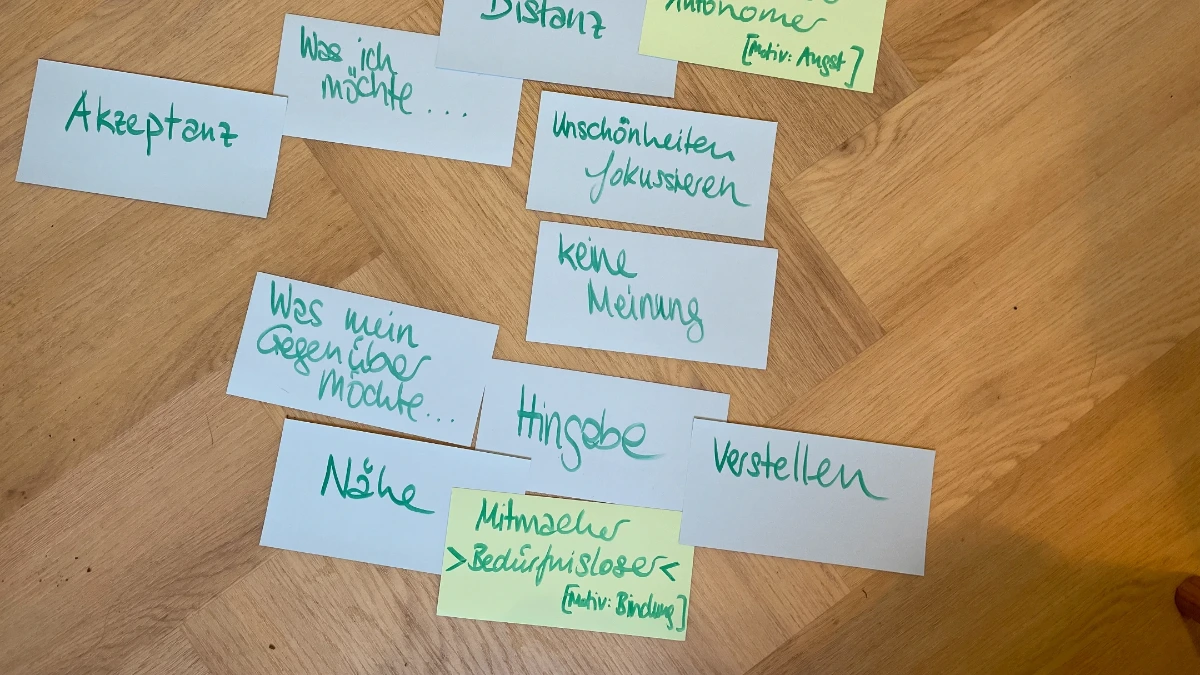 Distanz
Autonomer
[Motiv: Angst]
Was ich
möchte ...
Akzeptanz
Unschönheiten
fokussieren
keine
Meinung
Was mein
Gegenüber
möchte...
Hingabe
Verstellen
Nähe
Mitmacher
>Bedürfnisloser<
[Motiv: Bindung]